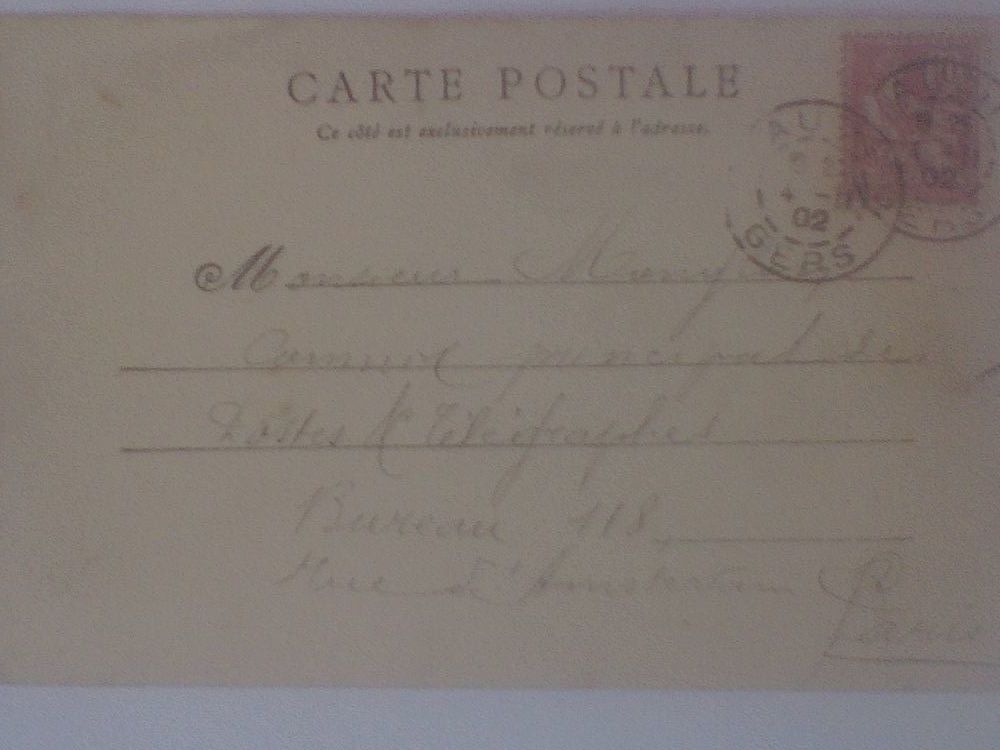 CARTE POSTALE
Ce côté est exclusivement réservé à l'adresse.
AU
02
GERS
02
GERS
Monsieur
Commis principal des
Postes & Télégraphes
Bureau 118
Rue d'Amsterdam
Paris